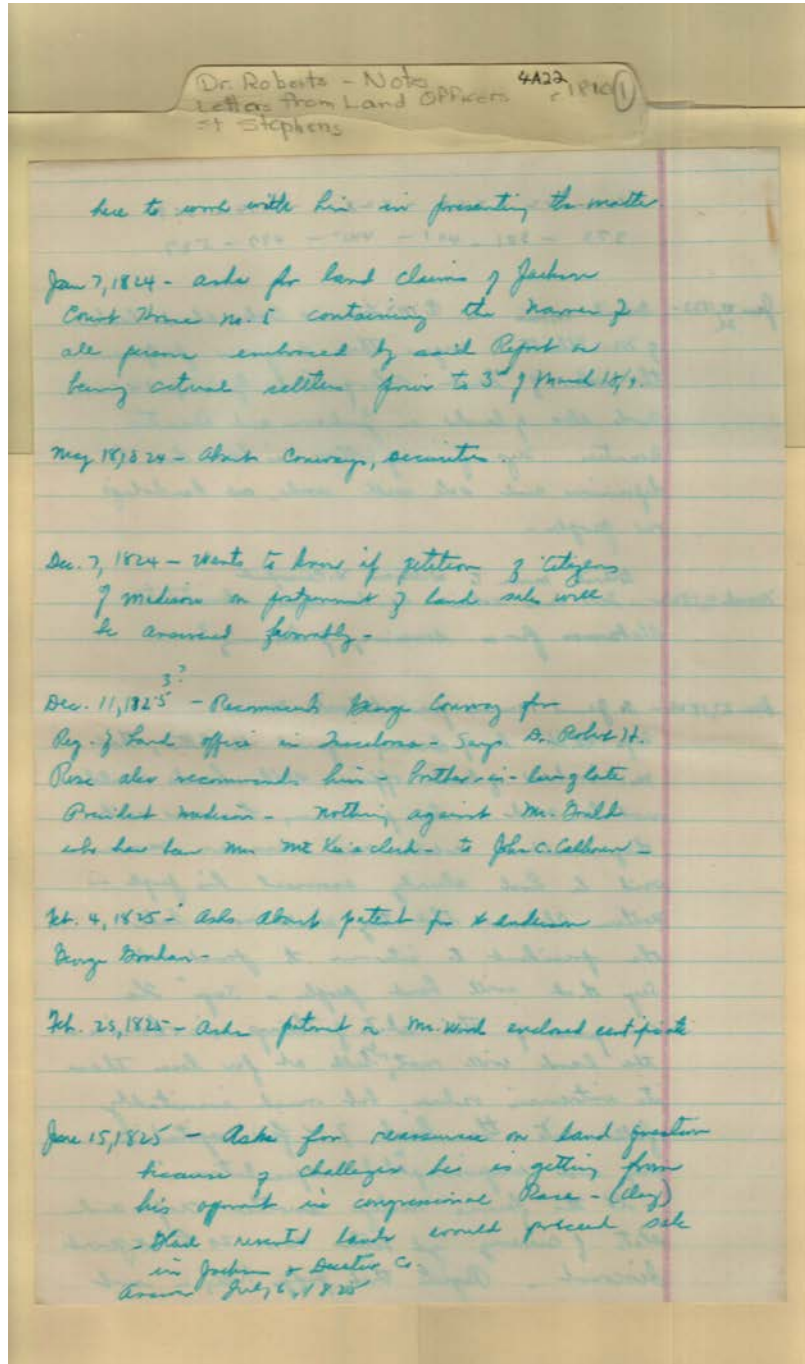 Dr. Roberts - Note 4A22 c 1820 1
Letters from Land Officers
St Stephens
here to work with him in presenting the matter
Jan 7, 1824 - asks for land claims of Jackson
Court House No. 5 containing the names of
all persons embraced by said Report as
being actual settlers prior to 3d of March 1819.
May 18, 1824 - About Conways, securities.
Dec. 7, 1824 - Wants to know if petition of Citizens
of Madison on postponement of land sales will
be answered favorably -
3?
Dec. 11, 1825 - Recommends George Conway for
Reg. of Land office in Tuscaloosa - Says Dr. Robt H.
Rose also recommends him - brother-in-law of late
President Madison - nothing against Mr.
who has been Mr McKee's clerk - to John C. Calhoun -
Feb. 4, 1825 - Asks about patent for
George -
Feb. 25, 1825 - Asks patent Mr. enclosed certificate
June 15, 1825 - Asks for reassurance on land question
because of challenges he is getting from
his opponent in congressional Race - (Clay)
- lands would preceed sale
in Jackson & Decatur Co.
Answer July 6, 1825